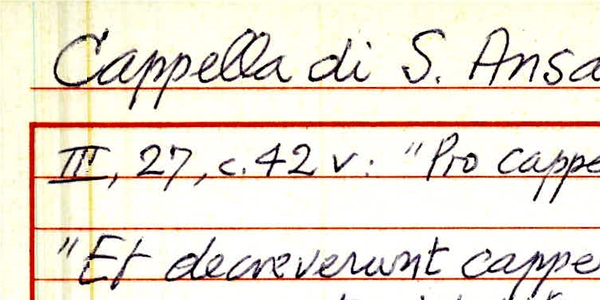 Cappella di S. Ansa
III, 27, c. 42 v: "Pro cappe
"Et decreverunt cappe